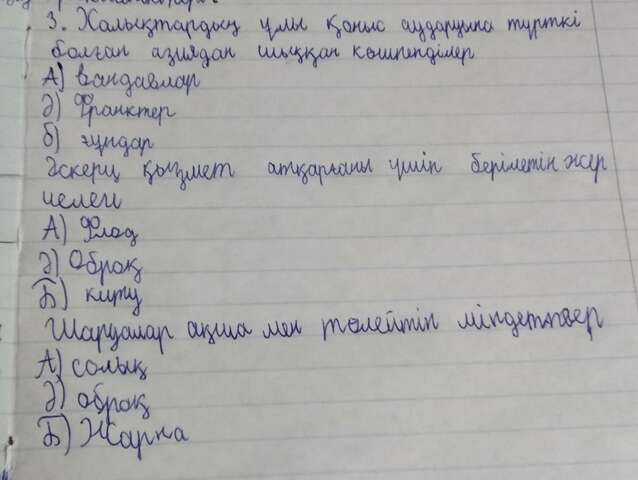 3. Халықтардың ұлы қоныс аударуына түрткі
болған азиядан шыққан көшпенділер
А) вандавлар
Ә) Франктер
б) ғұндар
Әскери қызмет атқарғаны үшін берілетін жер
иелеги
А) Флод
Ә) Оброқ
Б) киту
Шаруалар ақша мен төлейтін міндеттвер
А) солық
Ә) оброқ
Б) Жарна